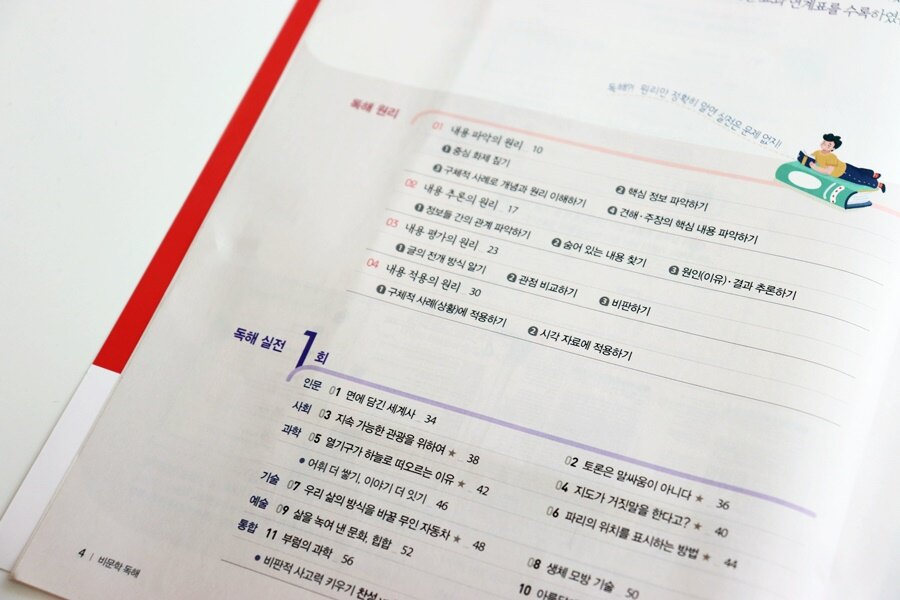 연계표를 수록하였
독해?! 원리만 정확히 알면 실전은 문제 없지!
독해 원리
01 내용 파악의 원리 10
❶ 중심 화제 짚기 ❷ 핵심 정보 파악하기
❸ 구체적 사례로 개념과 원리 이해하기 ❹ 견해·주장의 핵심 내용 파악하기
02 내용 추론의 원리 17
❶ 정보들 간의 관계 파악하기 ❷ 숨어 있는 내용 찾기 ❸ 원인(이유)·결과 추론하기
03 내용 평가의 원리 23
❶ 글의 전개 방식 알기 ❷ 관점 비교하기 ❸ 비판하기
04 내용 적용의 원리 30
❶ 구체적 사례(상황)에 적용하기 ❷ 시각 자료에 적용하기
독해 실전 1회
인문 01 면에 담긴 세계사 34 02 토론은 말싸움이 아니다 ★ 36
사회 03 지속 가능한 관광을 위하여 ★ 38 04 지도가 거짓말을 한다고? ★ 40
과학 05 열기구가 하늘로 떠오르는 이유 ★ 42 06 파리의 위치를 표시하는 방법 ★ 44
• 어휘 더 쌓기, 이야기 더 잇기 46
기술 07 우리 삶의 방식을 바꿀 무인 자동차 ★ 48 08 생체 모방 기술 50
예술 09 삶을 녹여 낸 문화, 힙합 52 10
통합 11 부럼의 과학 56
• 비판적 사고력 키우기 찬성
4 | 비문학 독해